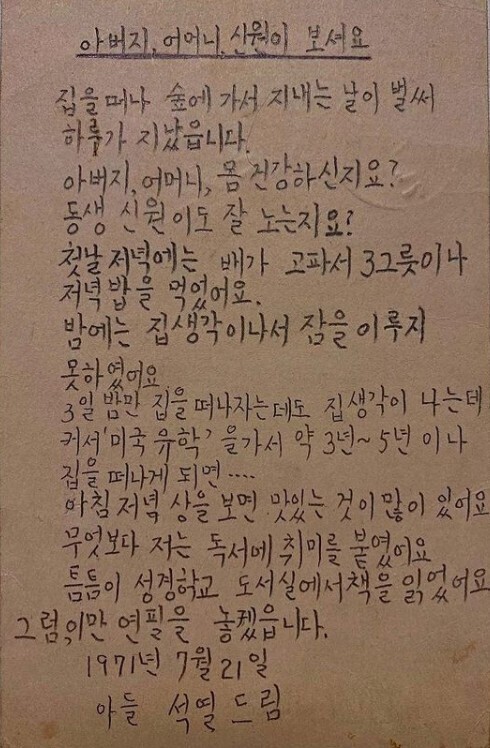 아버지, 어머니, 신원이 보셔요
집을 떠나 숲에 가서 지내는 날이 벌써
하루가 지났읍니다.
아버지, 어머니, 몸 건강하신지요?
동생 신원이도 잘 노는지요?
첫날 저녁에는 배가 고파서 3그릇이나
저녁밥을 먹었어요.
밤에는 집생각이나서 잠을 이루지
못하였어요
3일 밤만 집을 떠나자는데도 집생각이 나는데
커서 '미국 유학' 을가서 약 3년~5년 이나
집을 떠나게 되면‥‥
아침 저녁 상을 보면 맛있는 것이 많이 있어요
무엇보다 저는 독서에 취미를 붙였어요
틈틈이 성경학교 도서실에서책을 읽었어요
그럼, 이만 연필을 놓겠읍니다.
1971년 7월 21일
아들 석열 드림